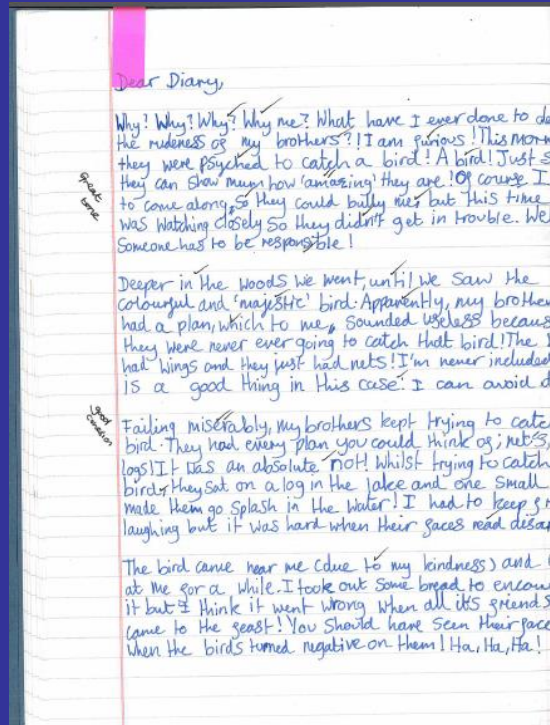 Dear Diary,
Why? Why? Why? Why me? What have I ever done to de
the rudeness of my brothers?! I am furious! This morn
they were psyched to catch a bird! A bird! Just s
they can show mum how 'amazing' they are! Of course I
to come along, so they could bully me, but this time
was watching closely so they didn't get in trouble. We
Someone has to be responsible!
Great tone
Deeper in the woods we went, until we saw the
colourful and 'majestic' bird. Apparently, my brother
had a plan, which to me, sounded useless becaus
they were never ever going to catch that bird! The
had wings and they just had nets! I'm never included
is a good thing in this case. I can avoid d
good
Failing miserably, my brothers kept trying to catc
bird. They had every plan you could think of; net's,
logs! It was an absolute not! Whilst trying to catch
bird, they sat on a log in the lake and one small
made them go splash in the water! I had to keep fr
laughing but it was hard when their faces read disa
The bird came near me (due to my kindness) and
at me for a while. I took out some bread to encou
it but I think it went wrong when all it's friends
came to the feast! You should have seen their face
when the birds turned negative on them! Ha, Ha, Ha!